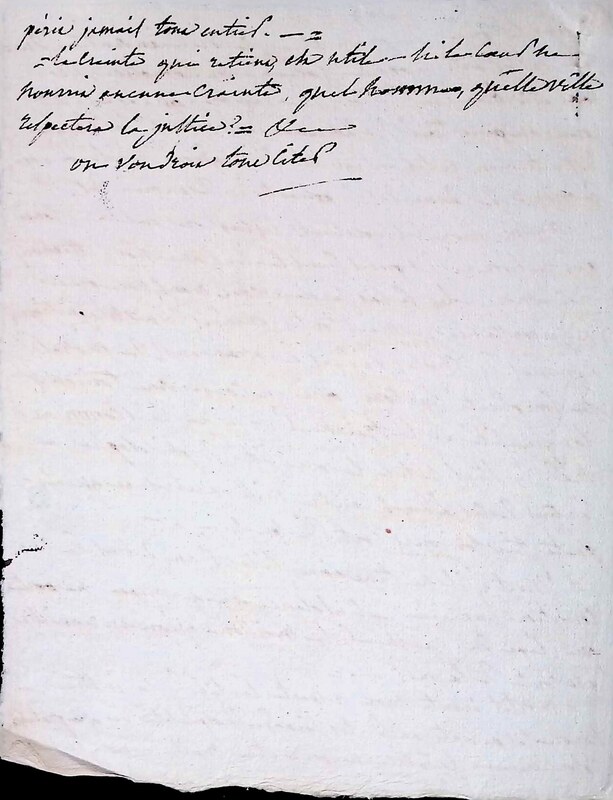 périr jamais tous entiers. — =
= la crainte qui retient, est utile — si le cœur ne
nourrit aucune crainte, quel homme, quelle ville
respectera la justice? =
on voudroit tout citer